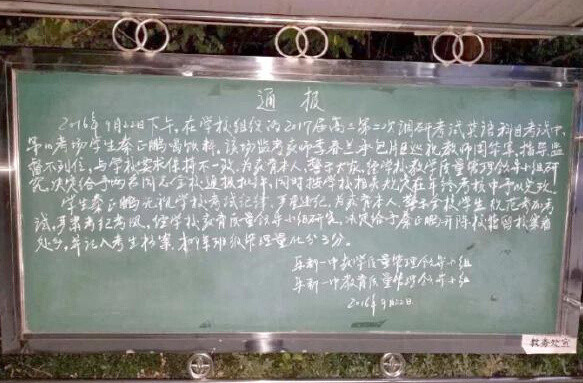 通 报
2016年9月22日下午,在学校组织的2017届高三第二次调研考试英语科目考试中,
第10考场学生秦正鹏喝饮料,该场监考教师李春兰承包片区巡视教师周荣军,指导监
督不到位,与学校要求保持不一致,为教育本人,警示大众,经学校教学质量管理领导小组研
究,决定给予两名同志全校通报批评,同时按学校相关规定在年终考核中予以兑现。
学生秦正鹏无视学校考试纪律,严重违纪,为教育本人,警示全校学生,规范参加考
试,严肃考纪考风,经学校教育质量领导小组研究,决定给予秦正鹏开除校籍留校察看
处分,并记入考生档案,扣年班级管理量化分3分。
乐新一中教学质量管理领导小组
乐新一中教育质量管理领导小组
2016年9月22日
教务处宣